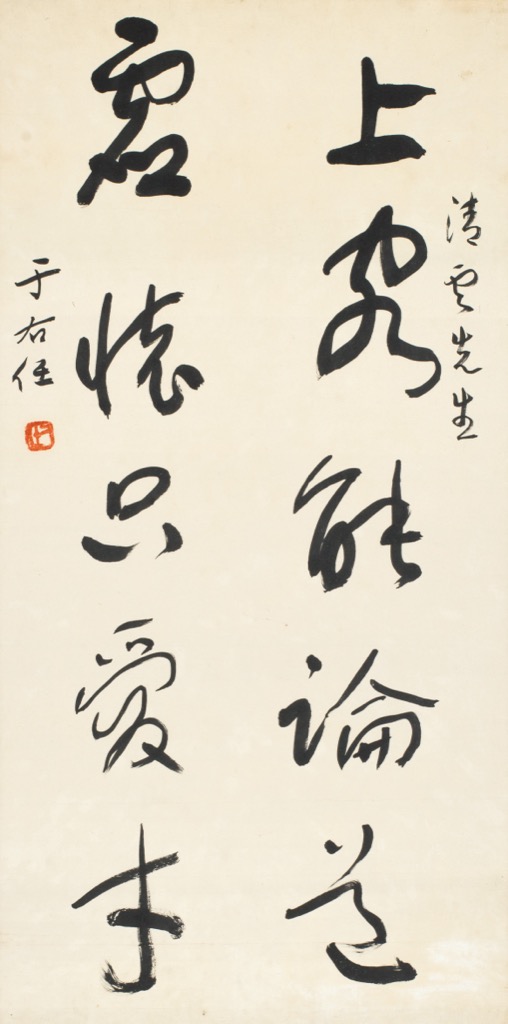 清雲先生
上客能論道
虛懷只愛才
于右任